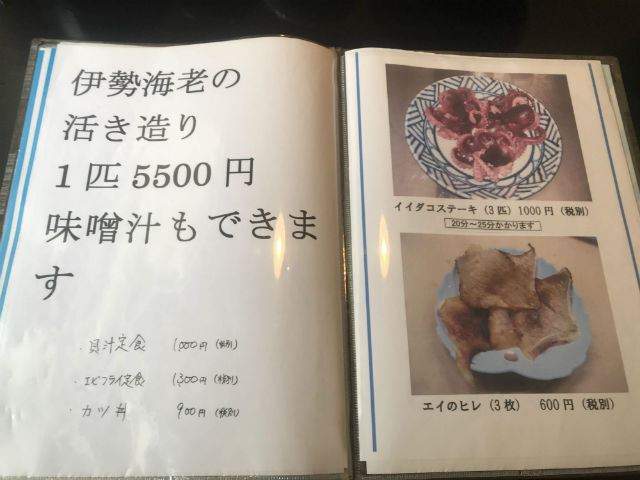 伊勢海老の
活き造り
1匹5500円
味噌汁もできま
す
・貝汁定食 1,000円(税別)
・エビフライ定食 1,300円(税別)
・カツ丼 900円(税別)
イイダコステーキ(3匹)1000円(税別)
20分～25分かかります
エイのヒレ(3枚) 600円(税別)